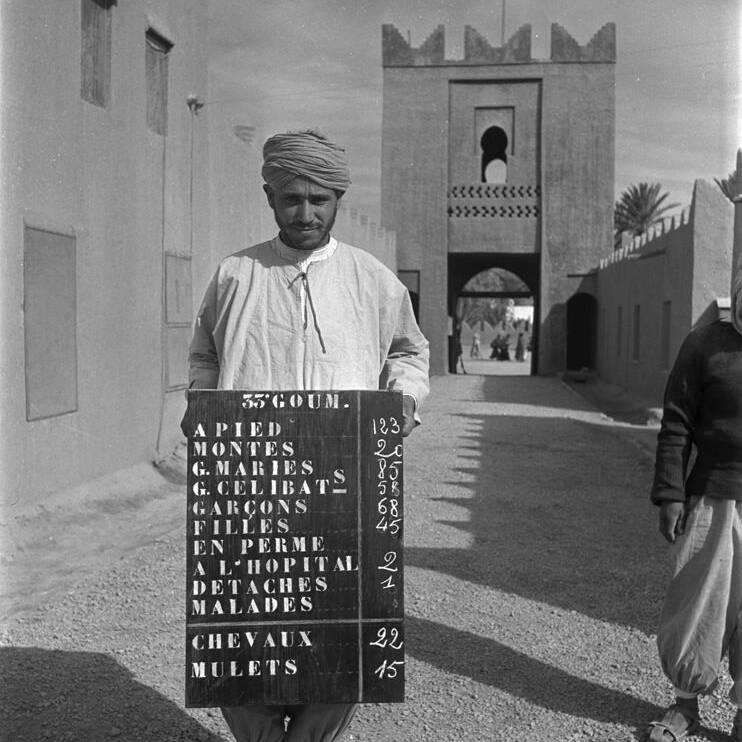 33e GOUM.
A PIED 123
MONTES 20
G. MARIES 85
G. CELIBATS 58
GARÇONS 68
FILLES 45
EN PERME
A L'HOPITAL 2
DETACHES 1
MALADES
CHEVAUX 22
MULETS 15